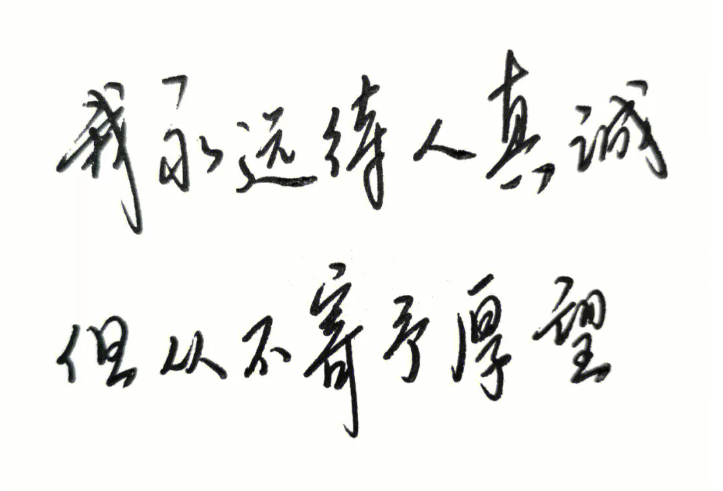 我永远待人真诚
但从不寄予厚望